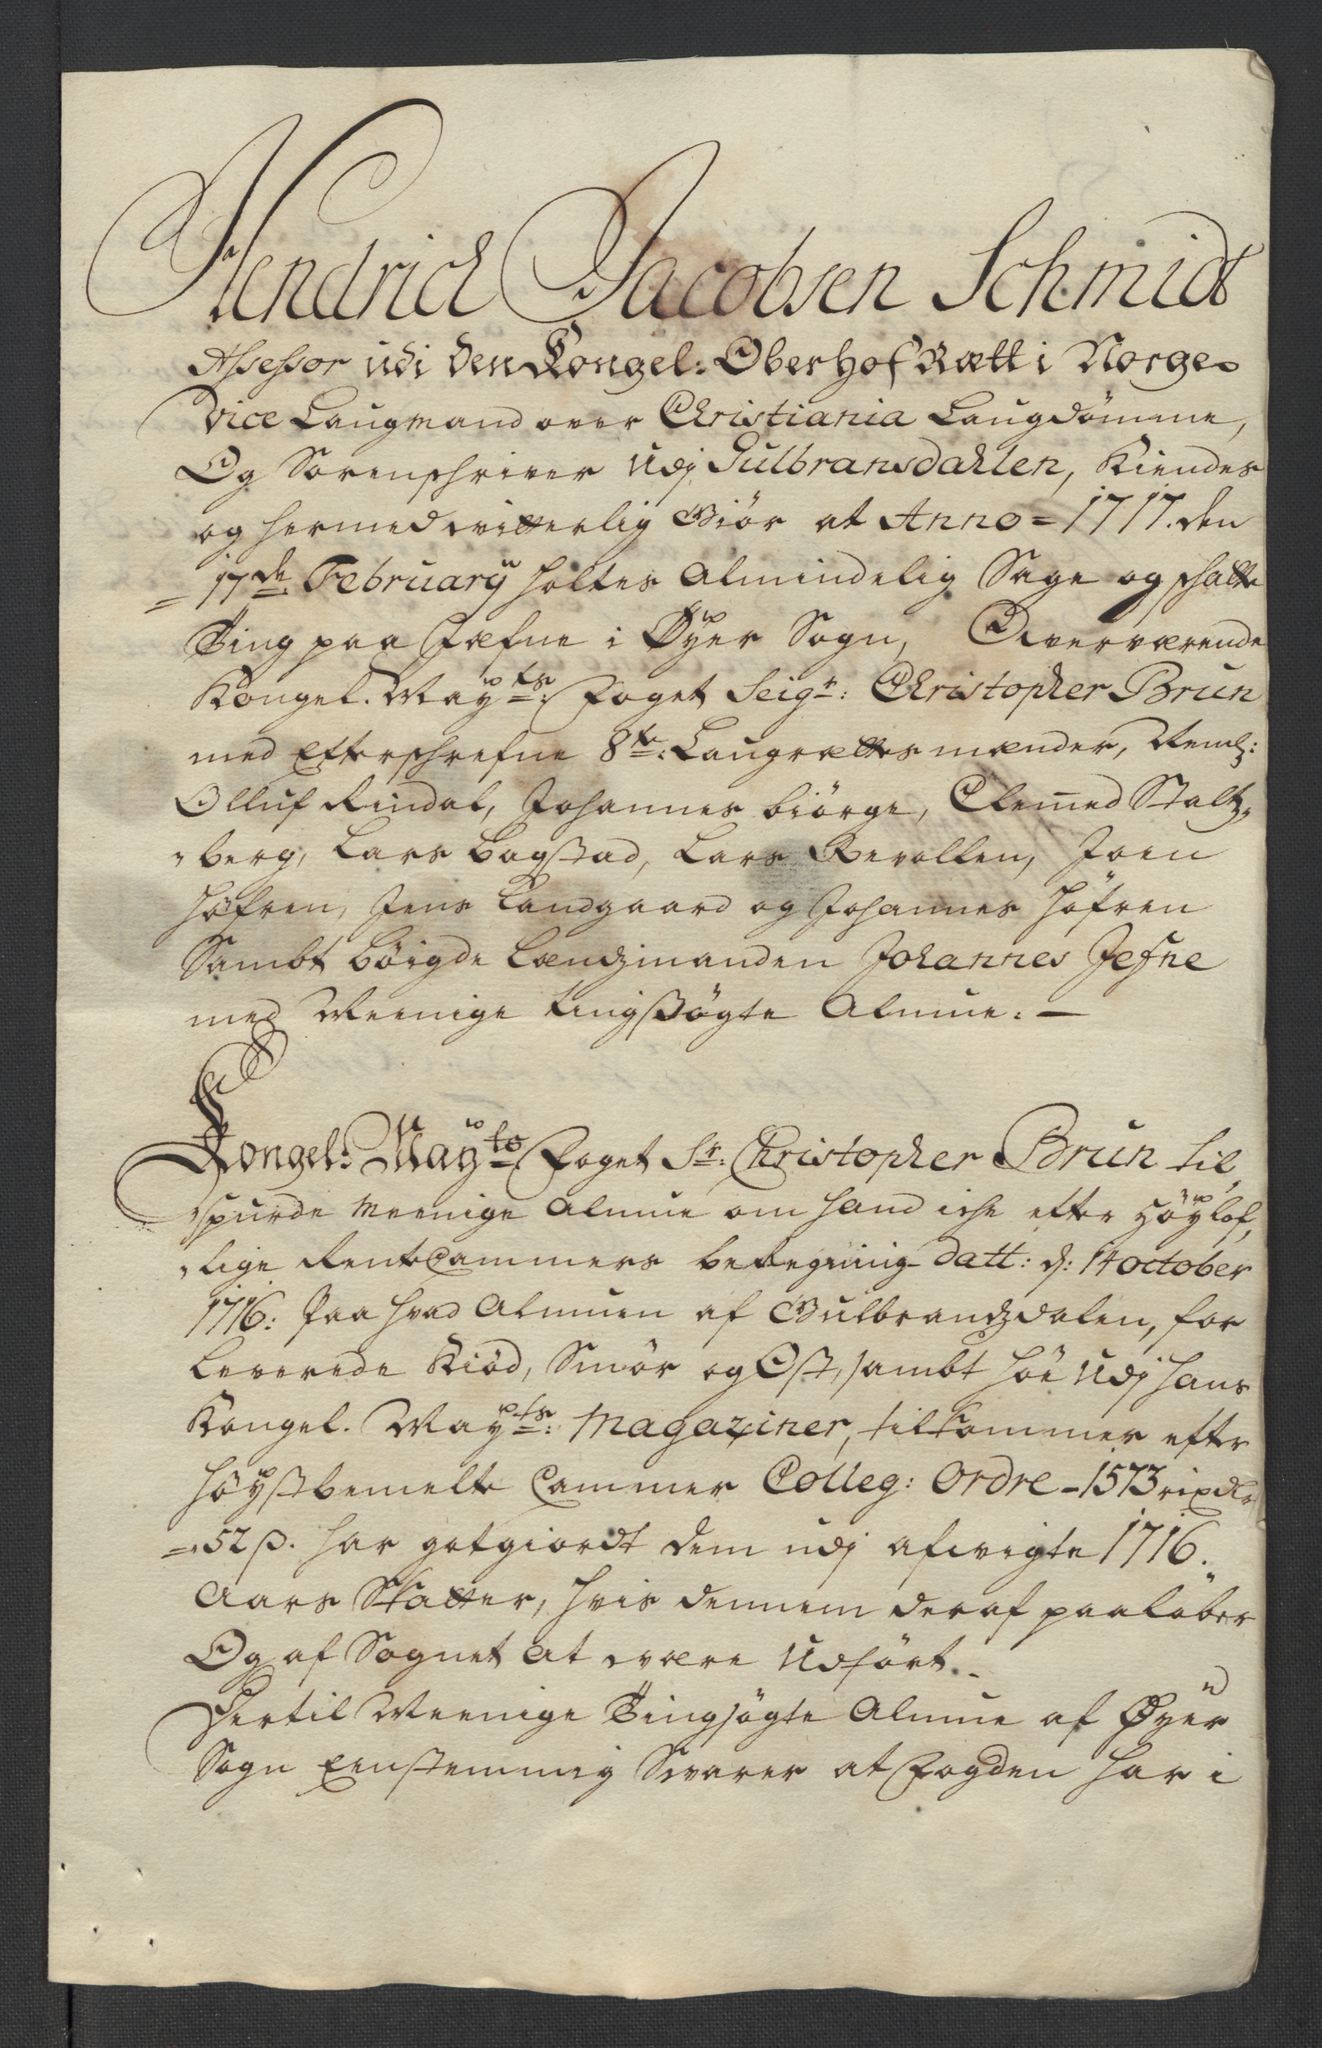 Hendrich Jacobsen Schmidt
Assessor udi den Kongel: Oberhof Rætt i Norge
Vice Laugmand over Christiania Laugdømme,
Og Sorenschriver udj Gulbransdahlen, Kiendes
og hermed vitterlig Giör at Anno = 1717. den
= 17de: February holtes Almindelig Sage og schatte
Ting paa Jæfne i Øyer Sogn, Overværende
Kongel. Mayts: Foget Seigr: Christopher Brun
med Efterschrefne 8te: Laugrættes mænder, Neml:
Olluf Rindal, Johannes Biörge, Clemed Staltz,
„berg, Lars Bagstad, Lars Revollen, Joen
Höfren, Jens Landgaard og Johannes Höfren
Sambt Böigde Lændzmanden Johannes Jefne
med Meenige tingsögte Almue. —
Kongel: Mayts Foget Sr: Christopher Brun til,
„spurde Meenige Almue om hand iche efter Höylof,
„lige RentCammers beregning datt: d: 14 october
1716: Paa hvad Almuen af Gulbrandzdalen, for
leverede Kiöd, Smör og Ost, sambt höe udj hans
Kongel. Mayts: Magaziner, tilkommer efter
höystbemelte Cammer Colleg: Ordre - 1573 rixdlr
= 52 ß. har gotgiordt dem udj afvigte 1716.
Aars Skatter, hvis dennem deraf paalöber
Og af Sognet at være udfört.
Hertil Meenige Tingsögte Almue af Øyer
Sogn Eenstemmig Svarer at Fogden har i